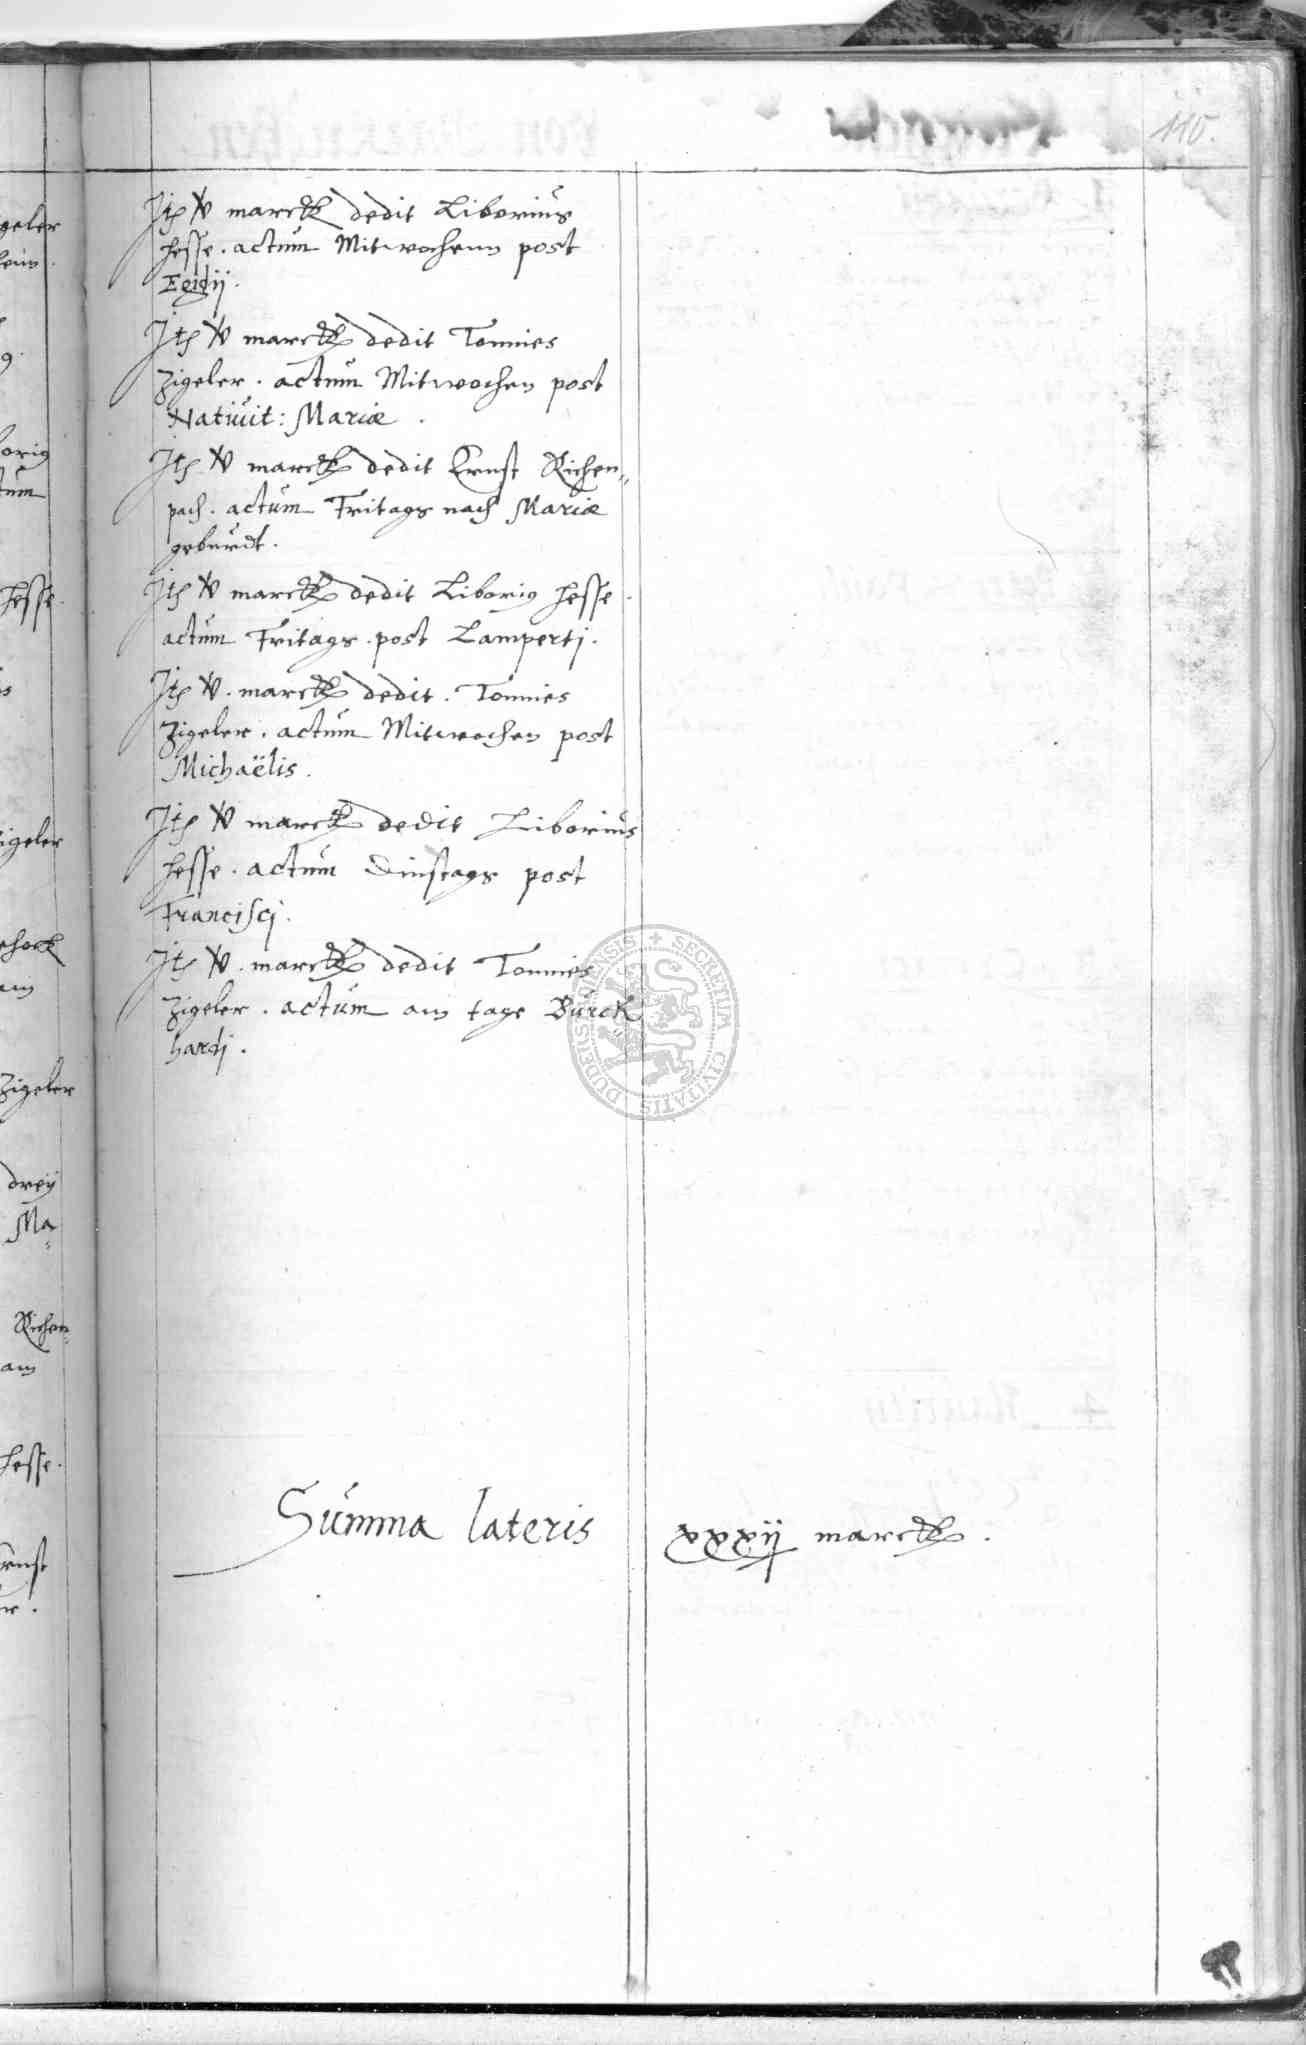 geler
orig
tum
Hesse.
igeler
Zigeler
dreÿ
Ma⸗
Richen⸗
am
Hesse.
Ernst
115.
Itē v marck dedit Liborius
Hesse. actum Mitwochenn post
Egidij.
Itē v marck dedit Tonnies
Zigeler. actum Mitwochen post
Nativit: Mariæ.
Itē v marck dedit Ernst Richen⸗
pach. actum Fritags nach Mariæ
geburdt.
Itē v marck dedit Liborig Hesse.
actum Fritags. post Lamperti.
Itē v. marck dedit. Tonnies
Zigeler. actum Mitwochen post
Michaëlis.
Itē v marck dedit Liborius
Hesse. actum Dinstags post
Francisci.
Itē v. marck dedit Tonnies
Zigeler. actum am tage Burck
hardi.
SECRETUM CIVITATIS DUDERSTADENSIS
Summa lateris xxxij marck.